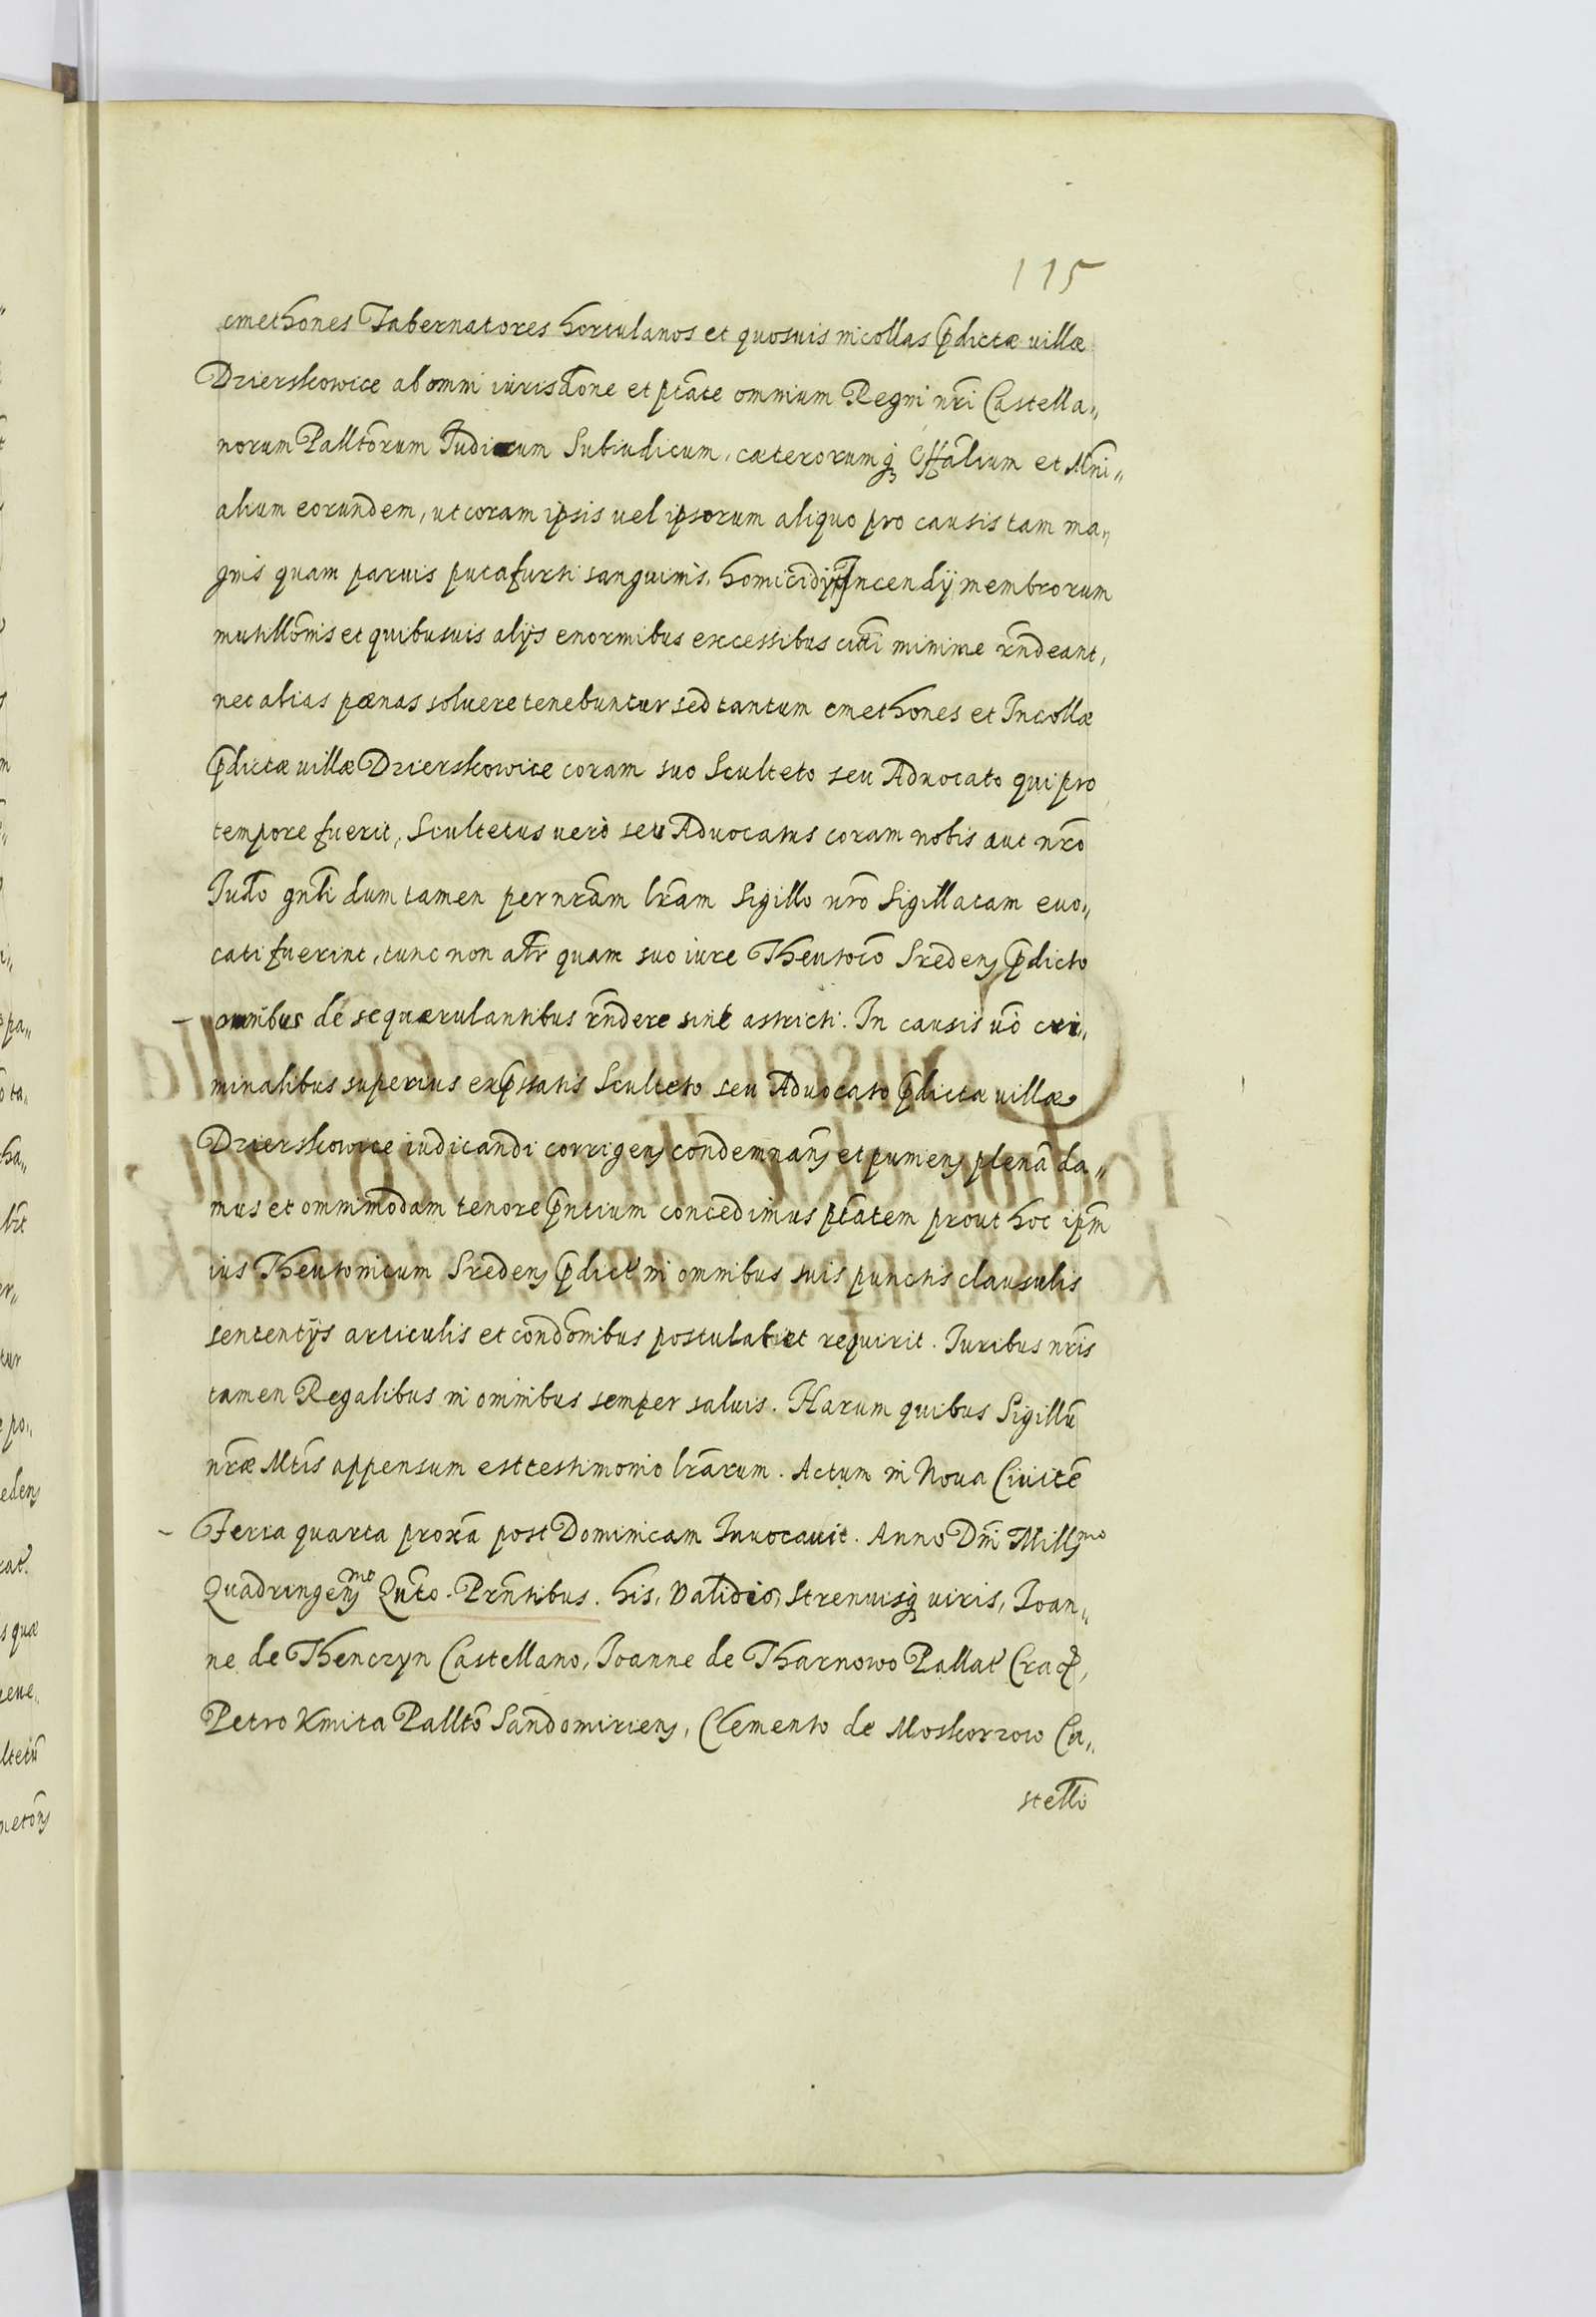 115
cmethones Tabernatores hortulanos et quosuis incollas p̃dictæ uillæ
Dzierskowice ab omni iurisd̃one et p̃tate omnium Regni nr̃i Castella„
norum Pallt̃orum Iudicum Subiudicum, cæterorumq́ʒ Offãlium et Mñi„
alium eorundem, ut coram ipsis uel ipsorum aliquo pro causis tam ma„
gnis quam paruis puta furti sanguinis, homicidij Incendij membrorum
mutillõnis et quibusuis alijs enormibus excessibus cit̃i minime r̃ndeant,
nec alias pœnas soluere tenebuntur sed tantum cmethones et Incollæ
p̃dictæ uillæ Dzierskowice coram suo Sculteto seu Aduocato qui pro
tempore fuerit, Scultetus uerò seu Aduocatus coram nobis aut nr̃o
Iud̃o gnl̃i dum tamen per nr̃am lr̃am Sigillo nr̃o Sigillatam euo„
cati fuerint, tunc non alr̃ quam suo iure Theutoc̃o Sredenʒ p̃dicto
omnibus de se quærulantibus r̃ndere sint astricti. In causis uõ cri„
minalibus superius exp̃ssatis Sculteto seu Aduocato p̃dictæ uillæ
Dzierskowice iudicandi corrigenʒ condemnanʒ et punienʒ plenã da„
mus et omnimodam tenore p̃ntium concedimus p̃tatem prout hoc ipm̃
ius Theutonicum Sredenʒ p̃dict' in omnibus suis punctis clausulis
sententijs articulis et cond̃onibus postulat et requirit. Iuribus nr̃is
tamen Regalibus in omnibus semper saluis. Harum quibus Sigillũ
nr̃æ Mt̃is appensum est testimonio lr̃arum. Actum in Noua Ciuitẽ
Feria quarta proxã post Dominicam Inuocauit. Anno Dñi Millʒmo
Quadringenʒmo Qũto. Prñtibus. his, Validis, Strenuisq́ʒ uiris, Ioan„
ne de Thenczyn Castellano, Ioanne de Tharnowo Pallat' Crac',
Petro Kmita Pallt̃o Sandomirienʒ, Clemento de Moskorzow Ca„
stell̃o